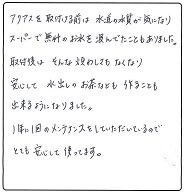 アクアスを取付ける前は 水道の水質が気になり
スーパーで無料のお水を汲んでたこともありました。
取付後は そんな煩わしさもなくなり
安心して 水出しのお茶なども 作ることも
出来るようになりました。
1年に1回のメンテナンスをしていただいているので
とても安心して使ってます。